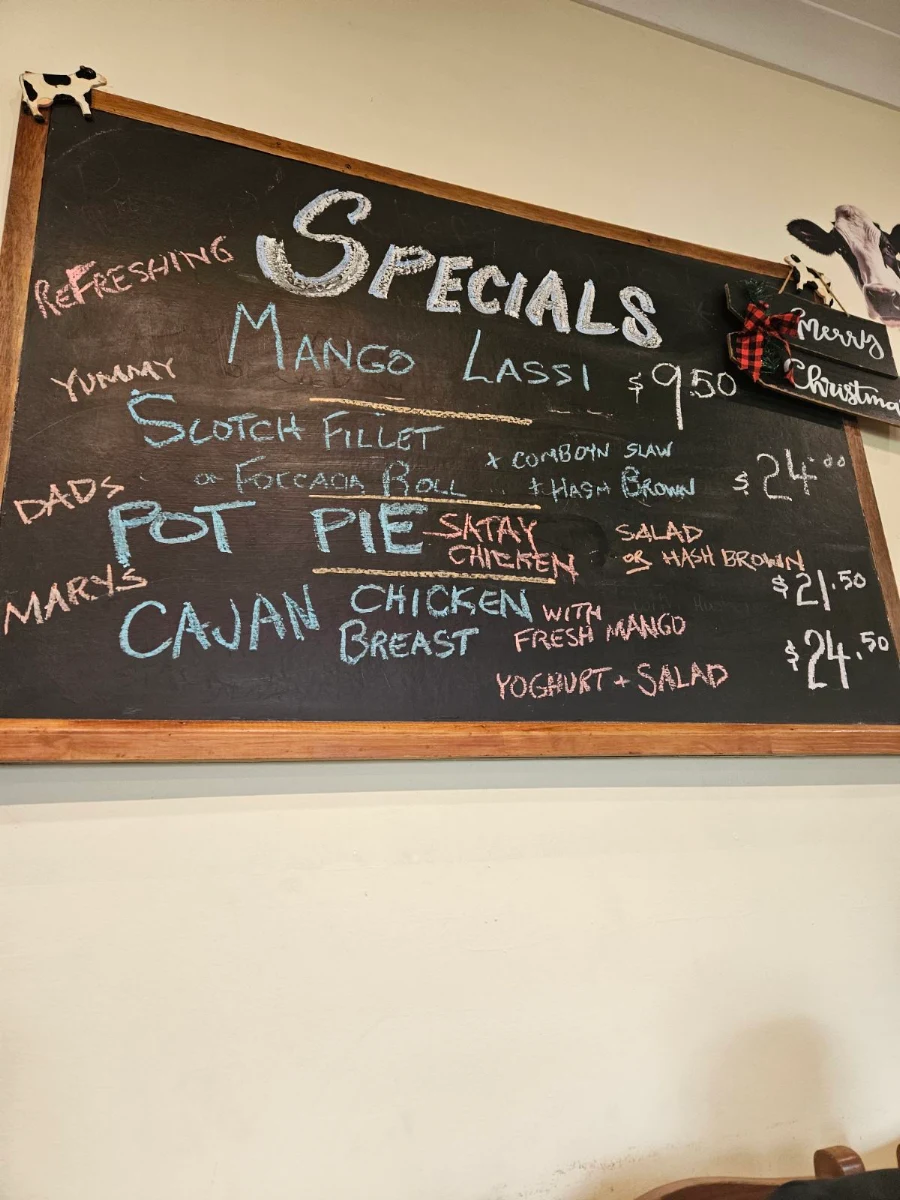 SPECIALS
REFRESHING
MANGO LASSI $9.50
YUMMY
SCOTCH FILLET + COMBOYN SLAW
on FOCCACIA ROLL + HASH BROWN $24.00
DADS
POT PIE SATAY CHICKEN SALAD
OR HASH BROWN
$21.50
MARYS
CAJAN CHICKEN BREAST WITH FRESH MANGO
YOGHURT + SALAD
$24.50
Merry
Christma